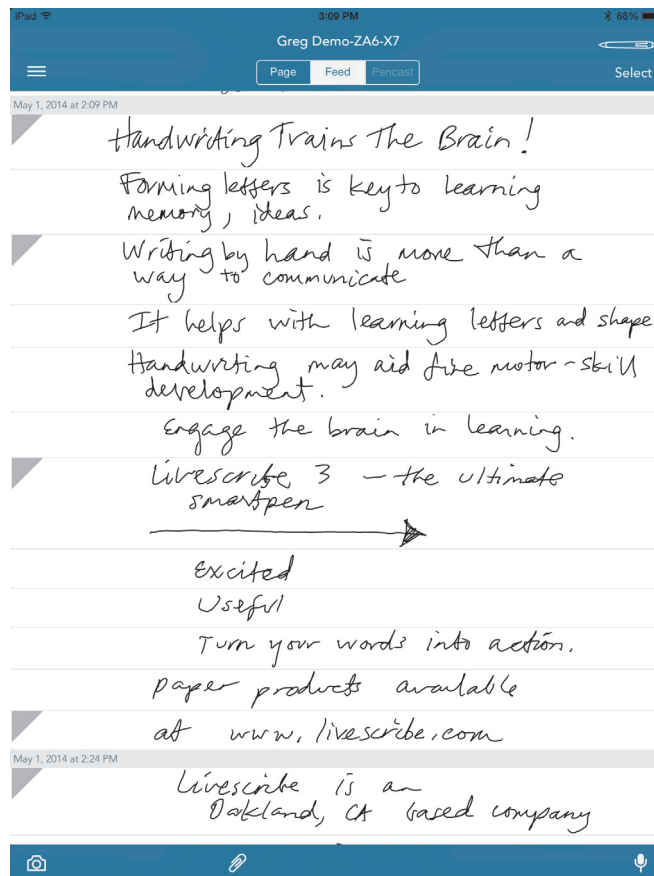 iPad
3:09 PM
68%
Greg Demo-ZA6-X7
Page Feed Pencast
Select
May 1, 2014 at 2:09 PM
Handwriting Trains The Brain!
Forming letters is key to learning
memory, ideas.
Writing by hand is more than a
way to communicate
It helps with learning letters and shape
Handwriting may aid fine motor-skill
development.
Engage the brain in learning.
Livescribe 3 – the ultimate
smartpen
Excited
Useful
Turn your words into action.
paper products available
at www.livescribe.com
May 1, 2014 at 2:24 PM
Livescribe is an
Oakland, CA based company